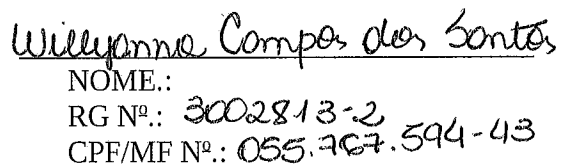 Willyanne Campos dos Santos
NOME.:
RG Nº.: 3002813-2
CPF/MF Nº.: 055.767.594-43